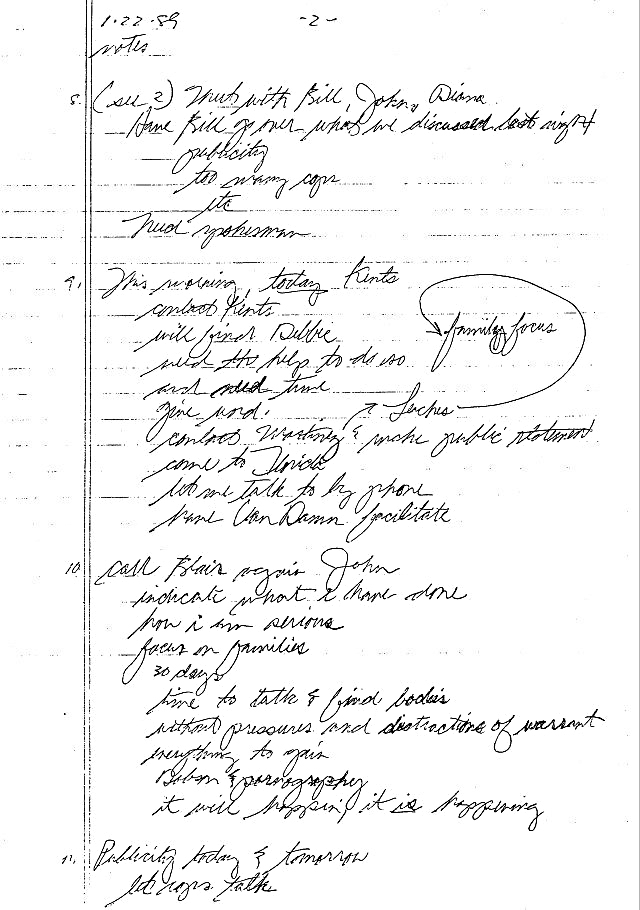 1·22·89 -2-
notes
8. (see 2) Meet with Bill, John, Diana
Have Bill go over what we discussed last night
publicity
too many cops
etc
Need spokesman
9. This morning, today Kents
contact Kents
will find Debbie
need the help to do so
and need time
family focus
give word. ↗ Leches
contact & make public statement
come to Florida
let me talk to by phone
have Van Damn facilitate
10. Call Blair again John
indicate what i have done
how i am serious
focus on families
30 days
time to talk & find bodies
without pressures and distractions of warrant
everything to gain
& pornography
it will happen, it is happening
11. Publicity today & tomorrow
let cops talk